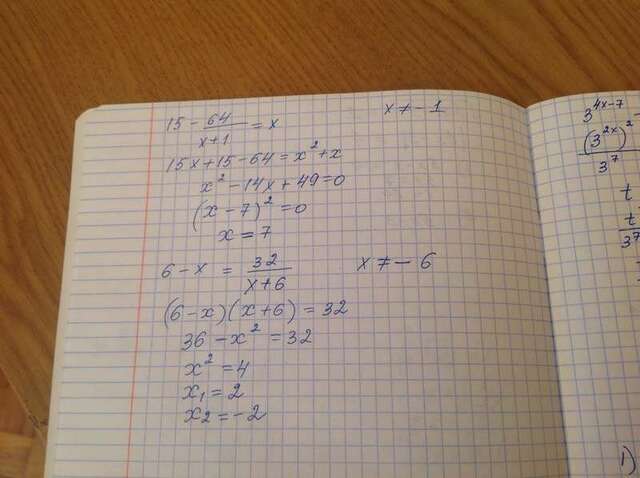 15 - 64/(x+1) = x
x ≠ -1
15x+15-64=x²+x
x²-14x+49=0
(x-7)²=0
x=7
6-x = 32/(x+6)
x ≠ -6
(6-x)(x+6)=32
36-x²=32
x²=4
x₁=2
x₂=-2
3^(4x-7) -
(3^(2x))²/3⁷
t
t/3⁷
1)